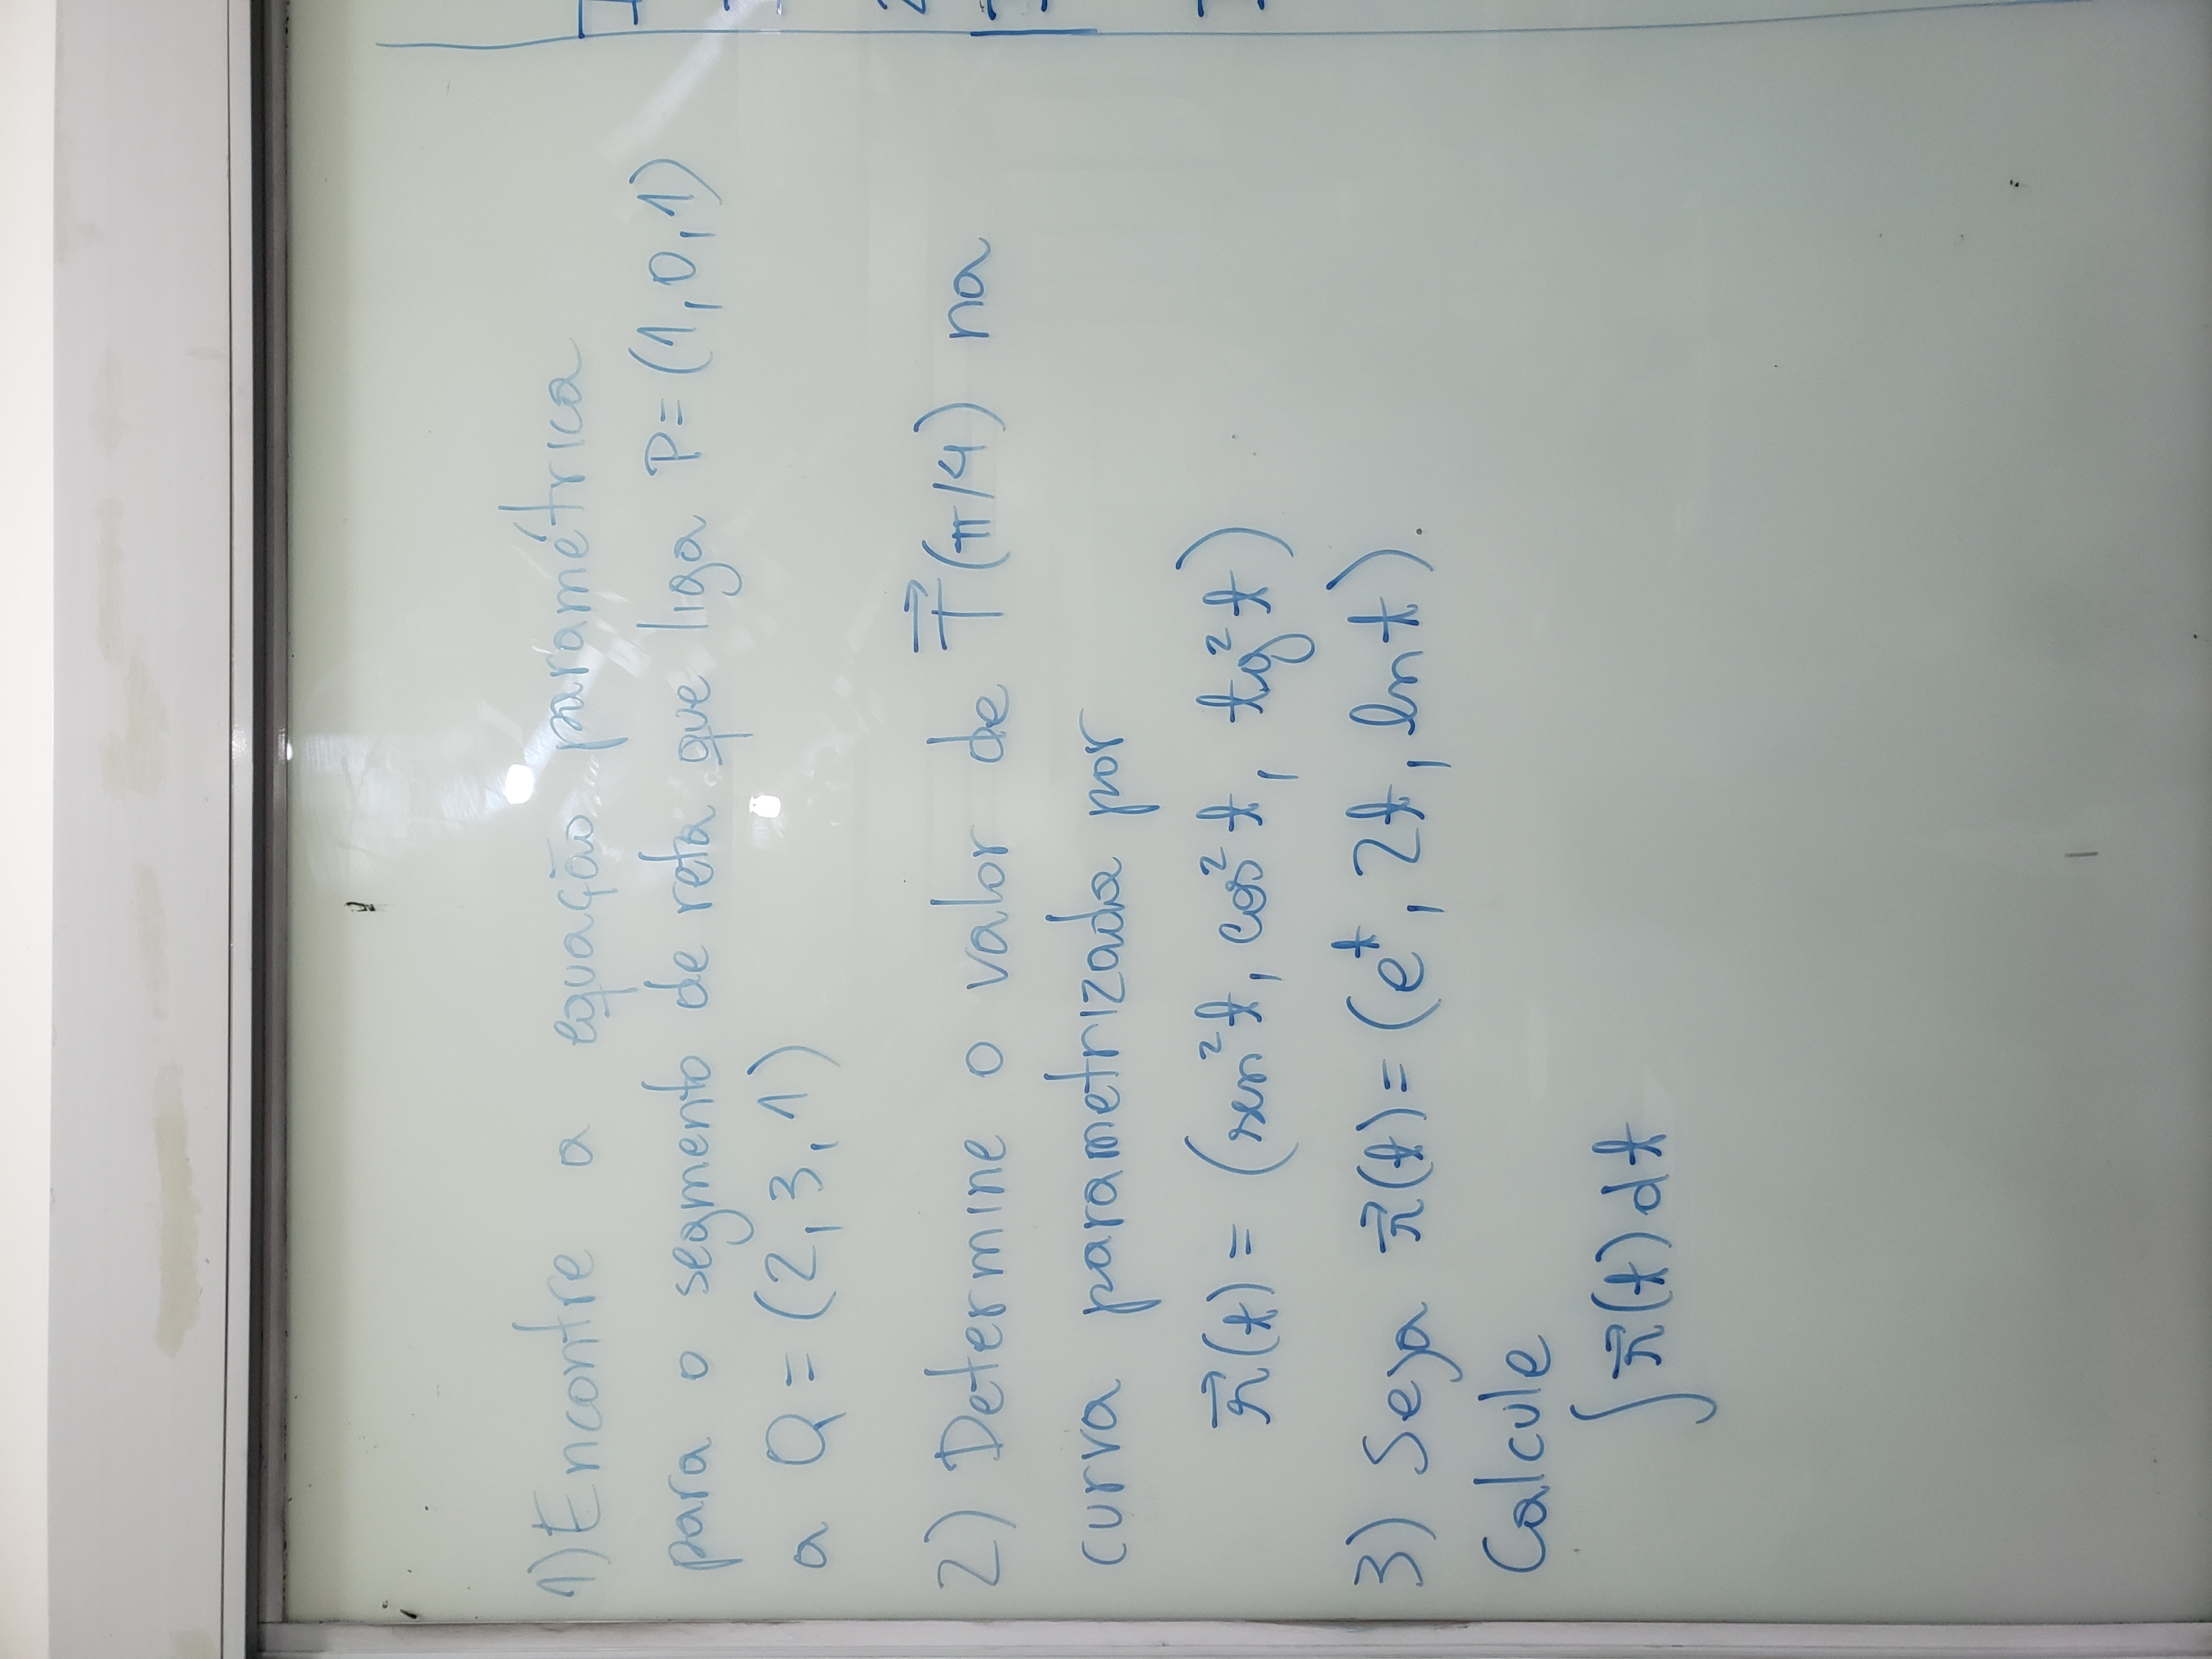 1) Encontre a equação paramétrica
para o segmento de reta que liga P=(1,0,1)
a Q=(2,3,1)
2) Determine o valor de T⃗(π/4) na
curva parametrizada por
r⃗(t) = (sen²t, cos²t, tg²t)
3) Seja r⃗(t)=(eᵗ, 2t, ln t).
Calcule
∫r⃗(t)dt